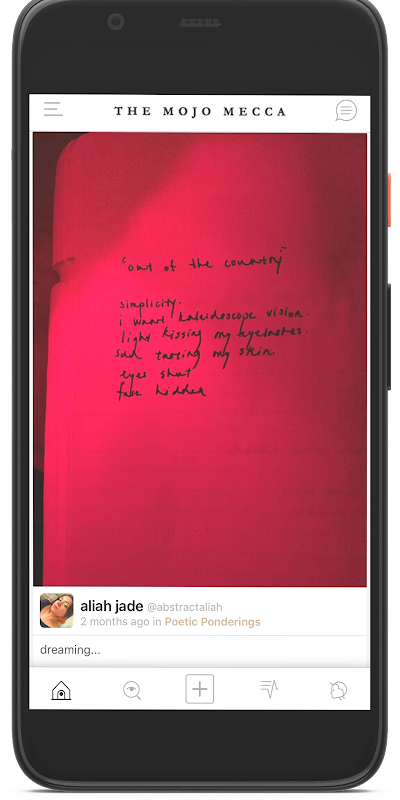 THE MOJO MECCA
"out of the country"
simplicity.
i want kaleidoscope vision.
light kissing my eyelashes.
sun tasting my skin.
eyes shut
face hidden
aliah jade @abstractaliah
2 months ago in Poetic Ponderings
dreaming...